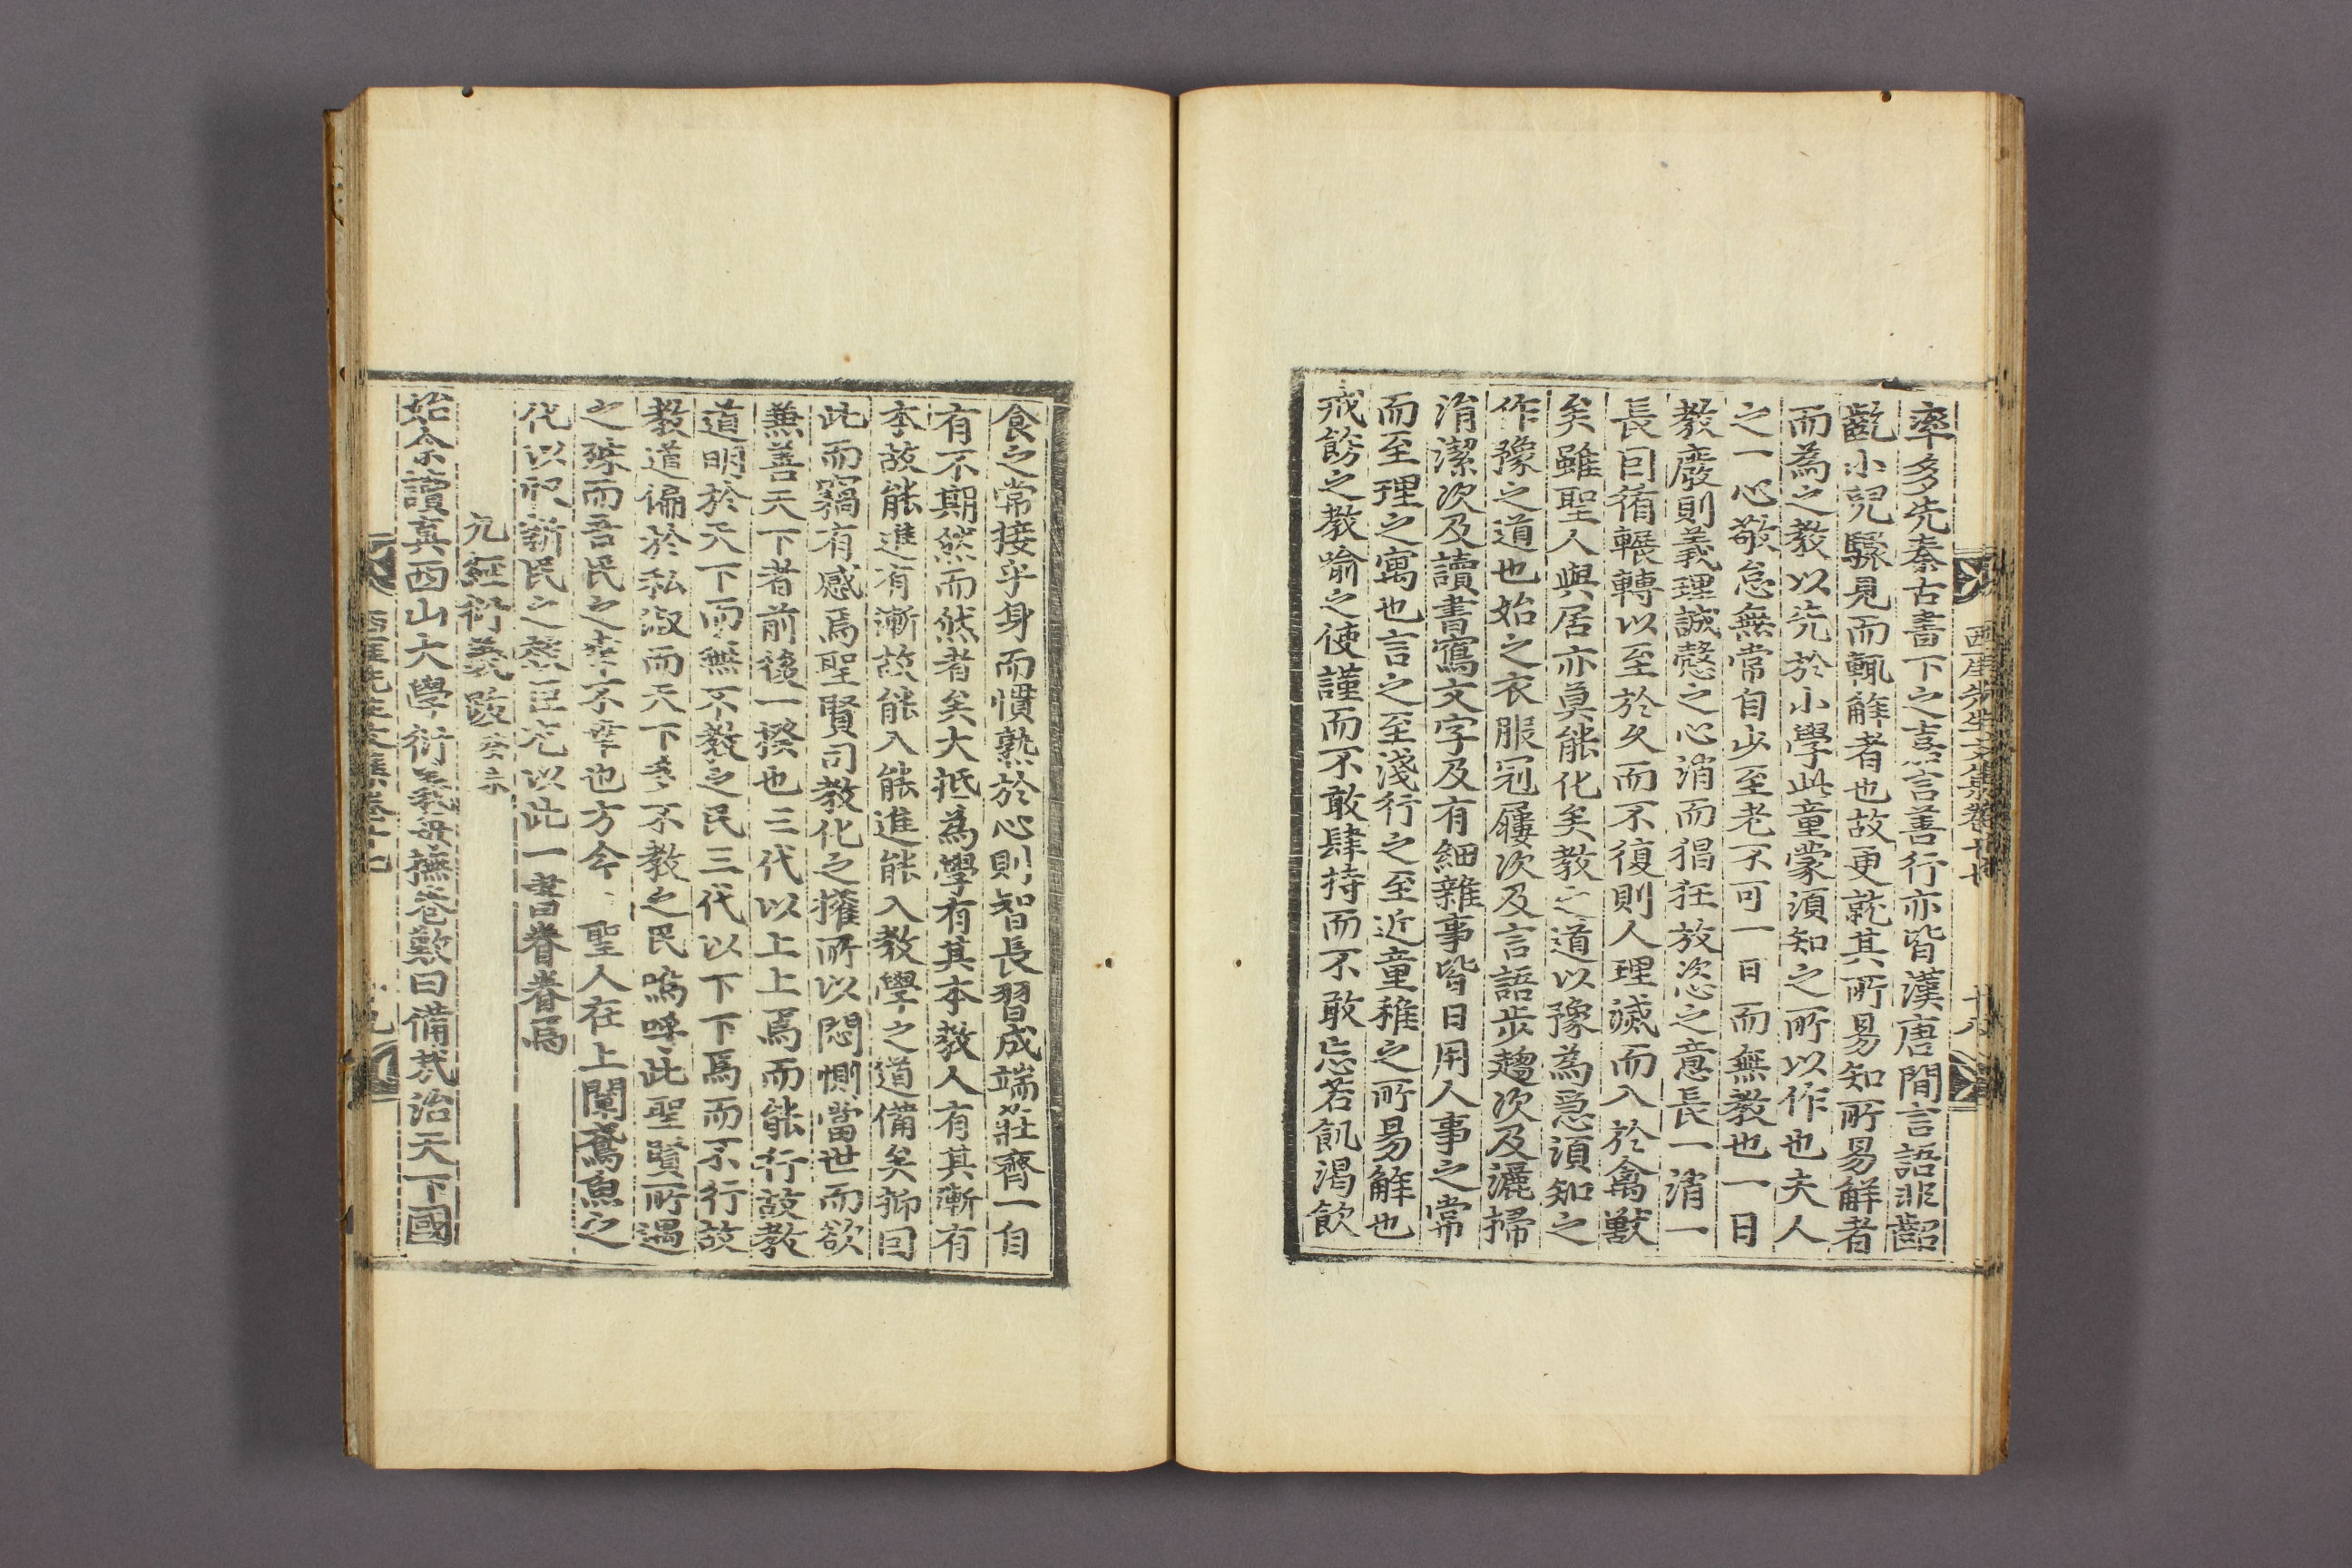 西厓先生文集卷十七
十八
率多先秦古書下之嘉言善行亦皆漢唐間言語非齠
齔小兒驟見而輒解者也故更就其所易知所易解者
而為之教以先於小學此童蒙須知之所以作也夫人
之一心敬怠無常自少至老不可一日而無教也一日
教廢則義理誠慤之心消而猖狂放恣之意長一消一
長因循輾轉以至於久而不復則人理滅而入於禽獸
矣雖聖人與居亦莫能化矣教之道以豫為急須知之
作豫之道也始之衣服冠屨次及言語步趨次及灑掃
涓潔次及讀書寫文字及有細雜事皆日用人事之常
而至理之寓也言之至淺行之至近童稚之所易解也
戒飭之教喻之使謹而不敢肆持而不敢忘若飢渴飲
食之常接乎身而慣熟於心則智長習成端莊齊一自
有不期然而然者矣大抵為學有其本教人有其漸有
本故能進有漸故能入能進能入教學之道備矣抑因
此而竊有感焉聖賢司教化之權所以悶惻當世而欲
兼善天下者前後一揆也三代以上上焉而能行故教
道明於天下而無不教之民三代以下下焉而不行故
教道偏於私淑而天下多不教之民嗚呼此聖賢所遇
之殊而吾民之幸不幸也方今 聖人在上闡鳶魚之
化以釈新民之慈臣尤以此一書眷眷焉
九經衍義跋癸未
始余讀真西山大學衍義每撫卷歎曰備哉治天下國
西厓先生文集卷十七
十九